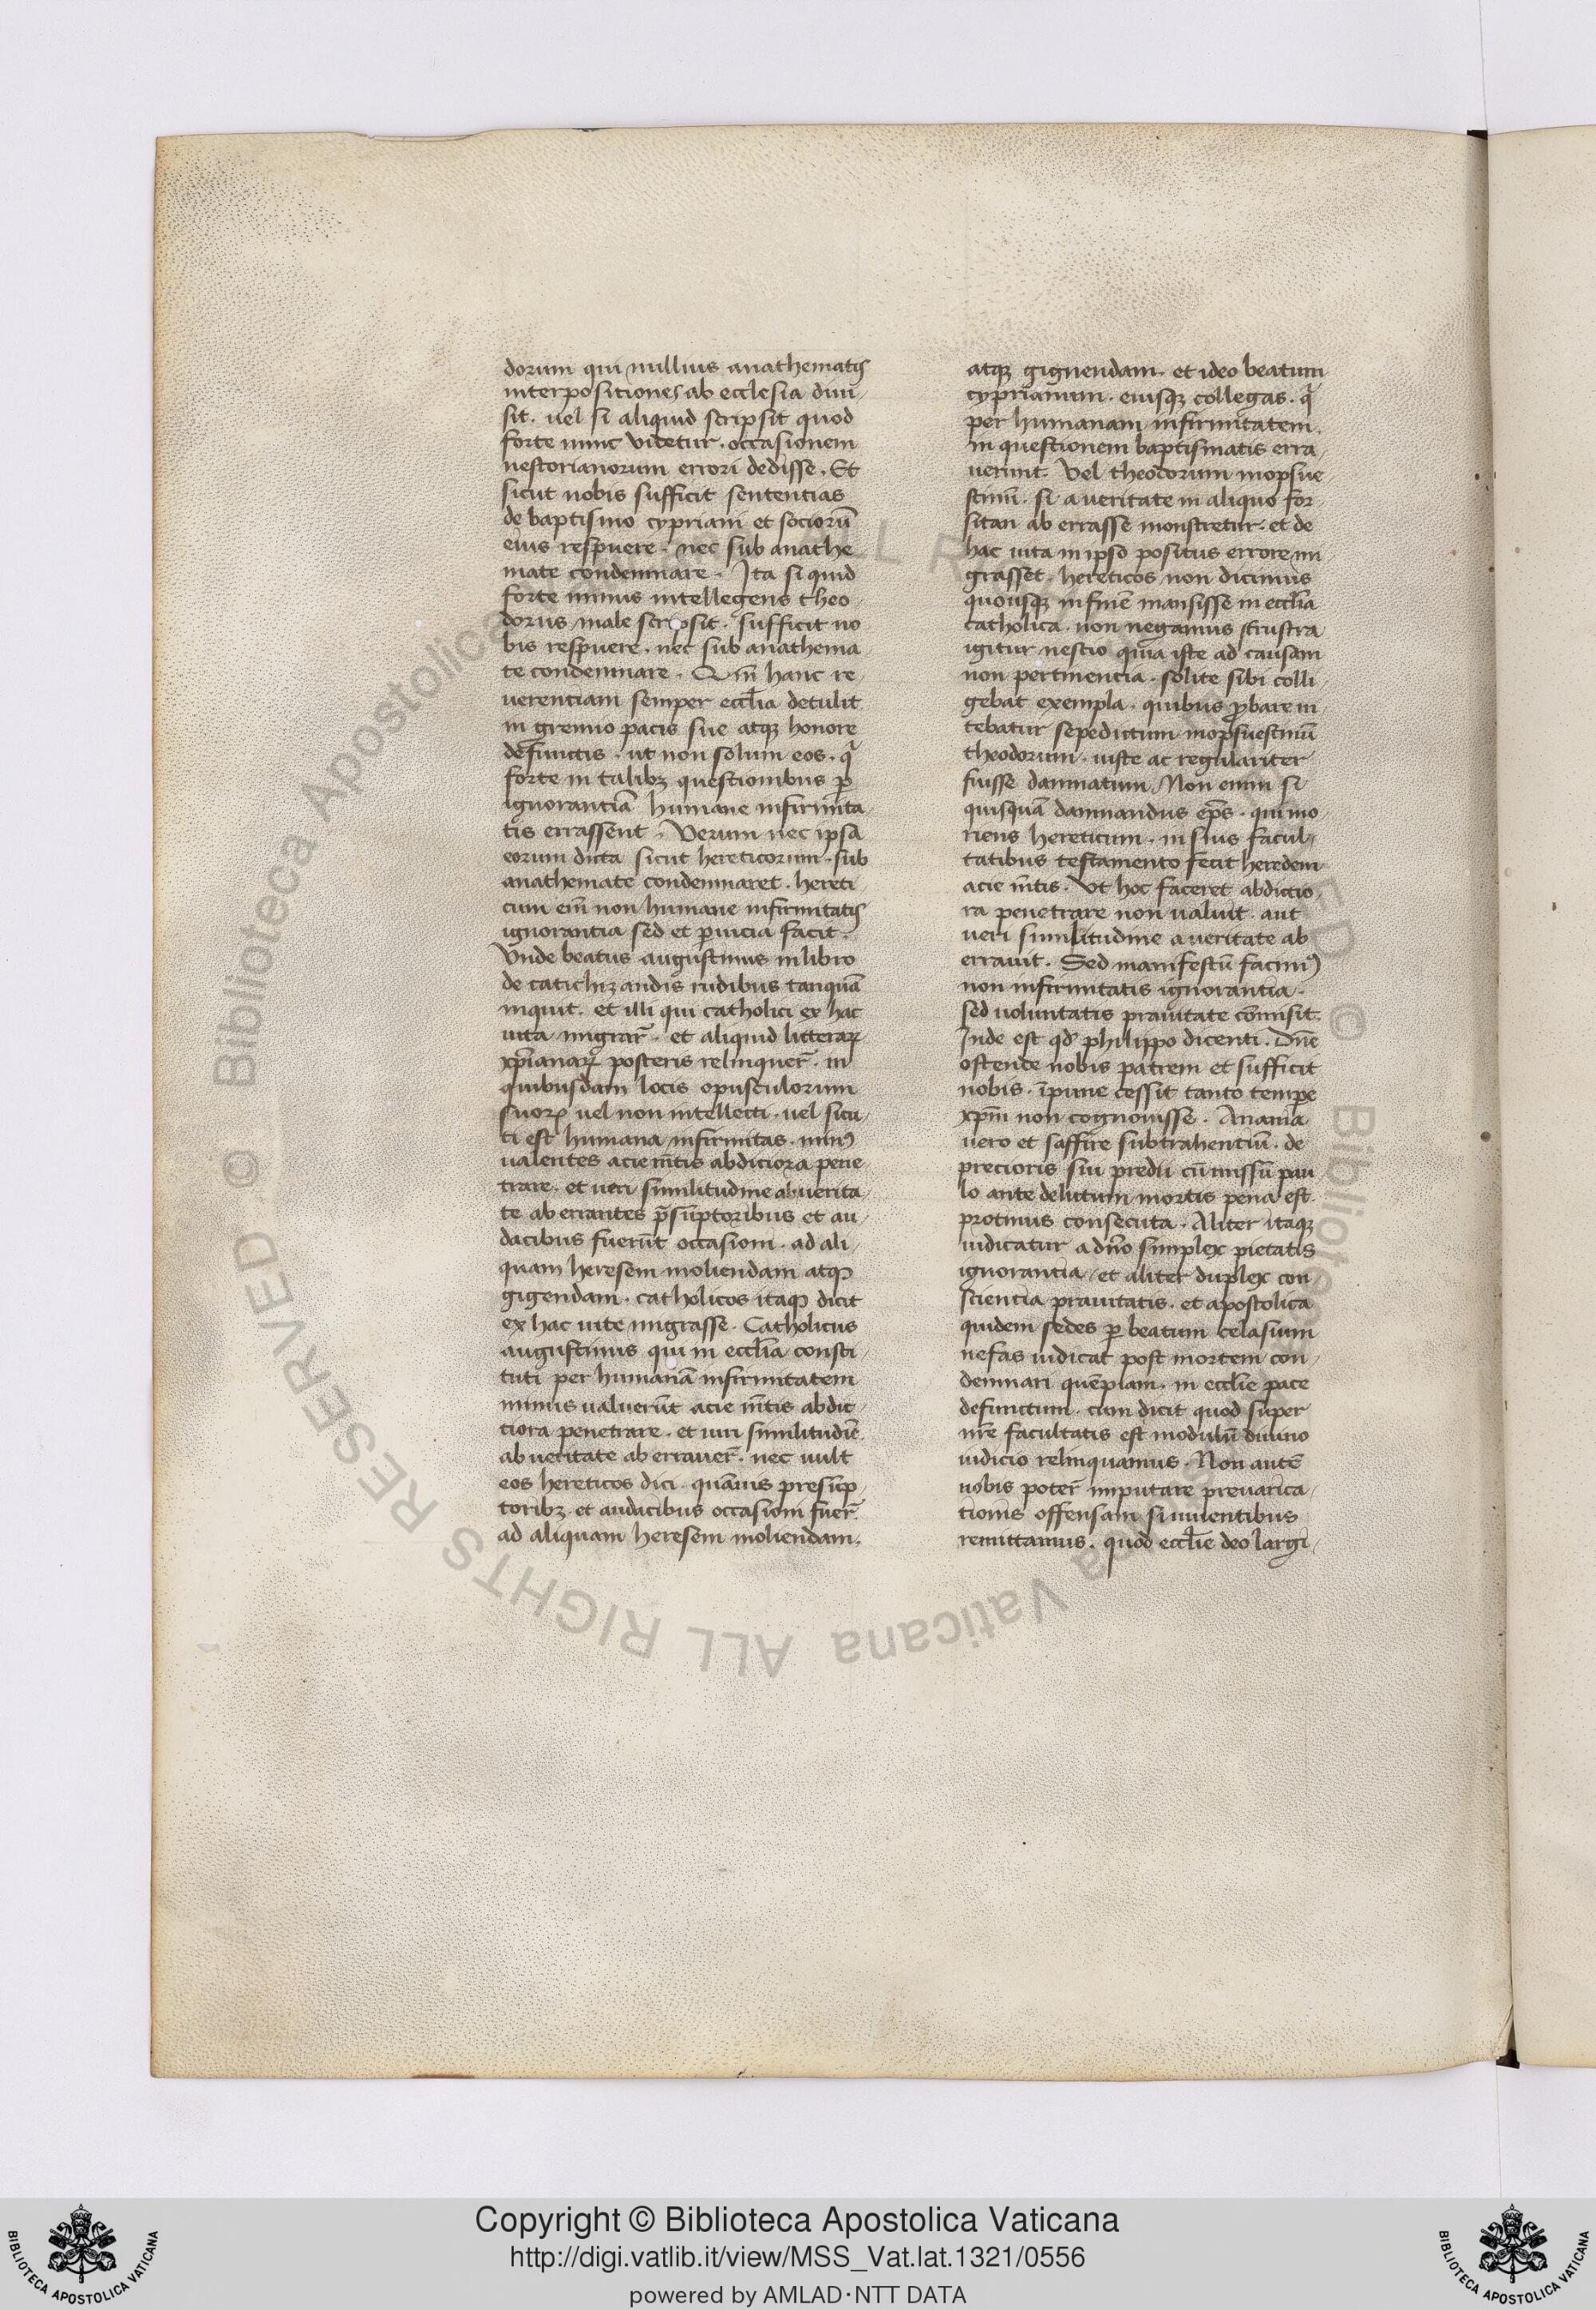 dorum qui nullius anathematis
interpositiones ab ecclesia diui
sit. uel si aliquid scripsit quod
forte nunc videtur. occasionem
nestorianorum errori dedisse. Et
sicut nobis sufficit sententias
de baptismo cypriani et sociorū
eius respuere. nec sub anathe
mate condemnare. Ita si quid
forte minus intellegens theo
dorus male scripsit. sufficit no
bis respuere. nec sub anathema
te condemnare. Qm̄ hanc re
uerenciam semper eccl̄ia detulit
in gremio pacis sue atqꝫ honore
defunctis. ut non solum eos. q
forte in talibꝫ questionibus ꝑ
ignorantiā humane infirmita
tis errassent. Verum nec ipsa
eorum dicta sicut hereticorum. sub
anathemate condemnaret. hereti
cum em̄ non humane infirmitatis
ignorantia sed et ꝑuicia facit.
Vnde beatus augustinus in libro
de catichizandis rudibus tanquā
inquit. et illi qui catholici ex hac
uita migrar̄. et aliquid litterarꝝ
xp̄ianarꝝ posteris relinquer̄. in
quibusdam locis opusculorum
suorꝝ uel non intellecti. uel sicu
ti est humana infirmitas. minꝰ
ualentes acie m̄tis abdiciora pene
trare. et ueri similitudine ab uerita
te ab errantes p̄sūptoribus et au
dacibus fuerūt occasioni. ad ali
quam heresem moliendam atqꝫ
gigendam. catholicos itaqꝫ dicit
ex hac uite migrasse. Catholicus
augustinus qui in eccl̄ia consti
tuti per humanā infirmitatem
minus ualuerūt acie m̄tis abdic
ciora penetrare. et uiri similitudīe
ab ueritate ab errauer̄. nec uult
eos hereticos dici. quāuis presūp
toribꝫ. et audacibus occasioni fuer̄
ad aliquam heresem moliendam.
atqꝫ gignendam. et ideo beatum
cyprianum. eiusqꝫ collegas. q
per humanam infirmitatem.
in questionem baptismatis erra
uerunt. Vel theodorum mopsue
stinū. si a ueritate in aliquo for
sitan ab errasse monstretur. et de
hac uita in ipso positus errore mi
grasset. hereticos non dicimus
quousqꝫ in finē mansisse in eccl̄ia
catholica. non negamus frustra
igitur nescio quia iste ad causam
non pertinencia. solite sibi colli
gebat exempla. quibus ꝓbare ni
tebatur sepedictum mopsuestinū
theodorum. iuste ac regulariter
fuisse damnatum. Non enim si
quisquā damnandus ep̄s. qui mo
riens hereticum. in suis facul
tatibus testamento fecit heredem
acie m̄tis. Vt hoc faceret abdictio
ra penetrare non ualuit. aut
ueri similitudine a ueritate ab
errauit. Sed manifestū facinꝰ
non infirmitatis ignorantia.
sed uoluntatis prauitate cōmisit.
Inde est qd̄ philippo dicenti. Dn̄e
ostende nobis patrem et sufficit
nobis. īpune cessit tanto tempe
xp̄m non cognouisse. Anania
uero et saffire subtrahentiū. de
precioris sui predii cū missū pau
lo ante delictum mortis pena est
protinus consecuta. Aliter itaqꝫ
iudicatur a dn̄o simplex pietatis
ignorantia. et aliter duplex con
scientia prauitatis. et apostolica
quidem sedes ꝑ beatum celasium
nefas iudicat post mortem con
demnari quēpiam. in eccl̄ie pace
defunctum. cum dicit quod super
nr̄e facultatis est modulū diuino
iudicio relinquamus. Non autē
nobis poter̄ imputare preuarica
tionis offensam si uiuentibus
remittamus. quod eccl̄ie deo largi
Copyright © Biblioteca Apostolica Vaticana
http://digi.vatlib.it/view/MSS_Vat.lat.1321/0556
powered by AMLAD·NTT DATA
BIBLIOTECA APOSTOLICA VATICANA
BIBLIOTECA APOSTOLICA VATICANA